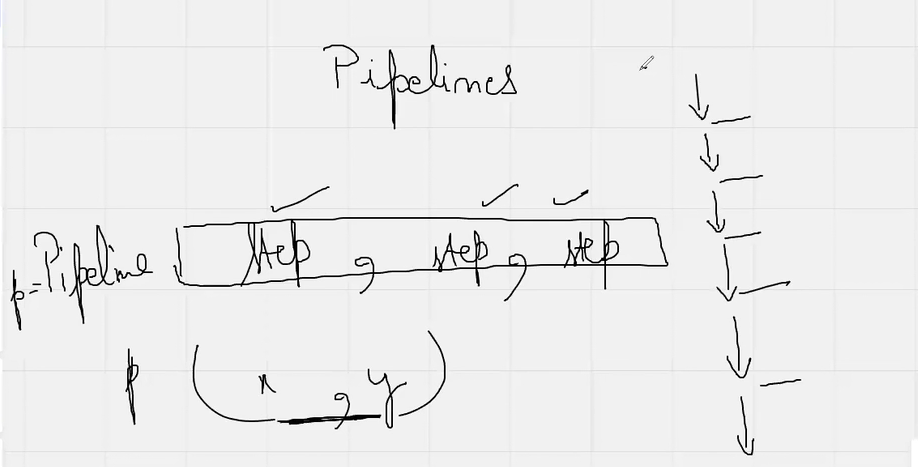 Pipelines
p=Pipeline [step, step, step]
p (x, y)